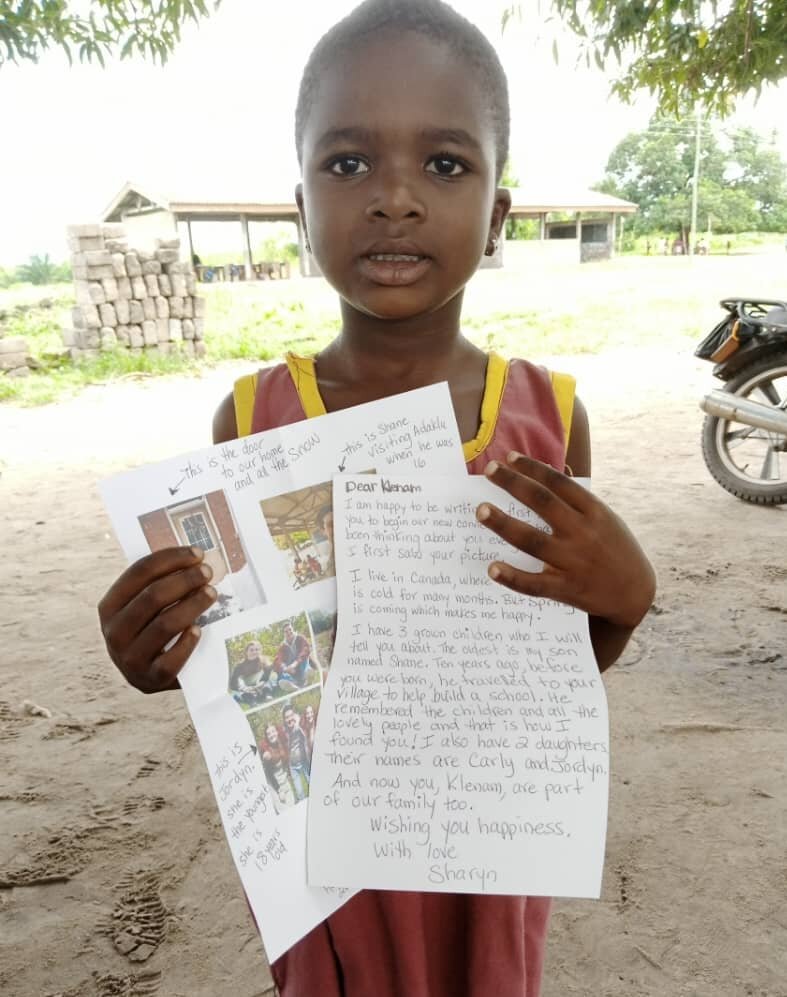 This is the door
to our home
and all the snow
this is Shane
visiting Adaklu
when he was
16
this is
Jordyn.
she is
the youngest
she is
18 years
old
Dear Klenam
I am happy to be first
you to begin our new
been thinking about you
I first saw your picture.
I live in Canada, where
is cold for many months. But Spring
is coming which makes me happy.
I have 3 grown children who I will
tell you about. The oldest is my son
named Shane. Ten years ago, before
you were born, he travelled to your
village to help build a school. He
remembered the children and all the
lovely people and that is how I
found you! I also have 2 daughters
Their names are Carly and Jordyn.
And now you, Klenam, are part
of our family too.
Wishing you happiness.
With love
Sharyn